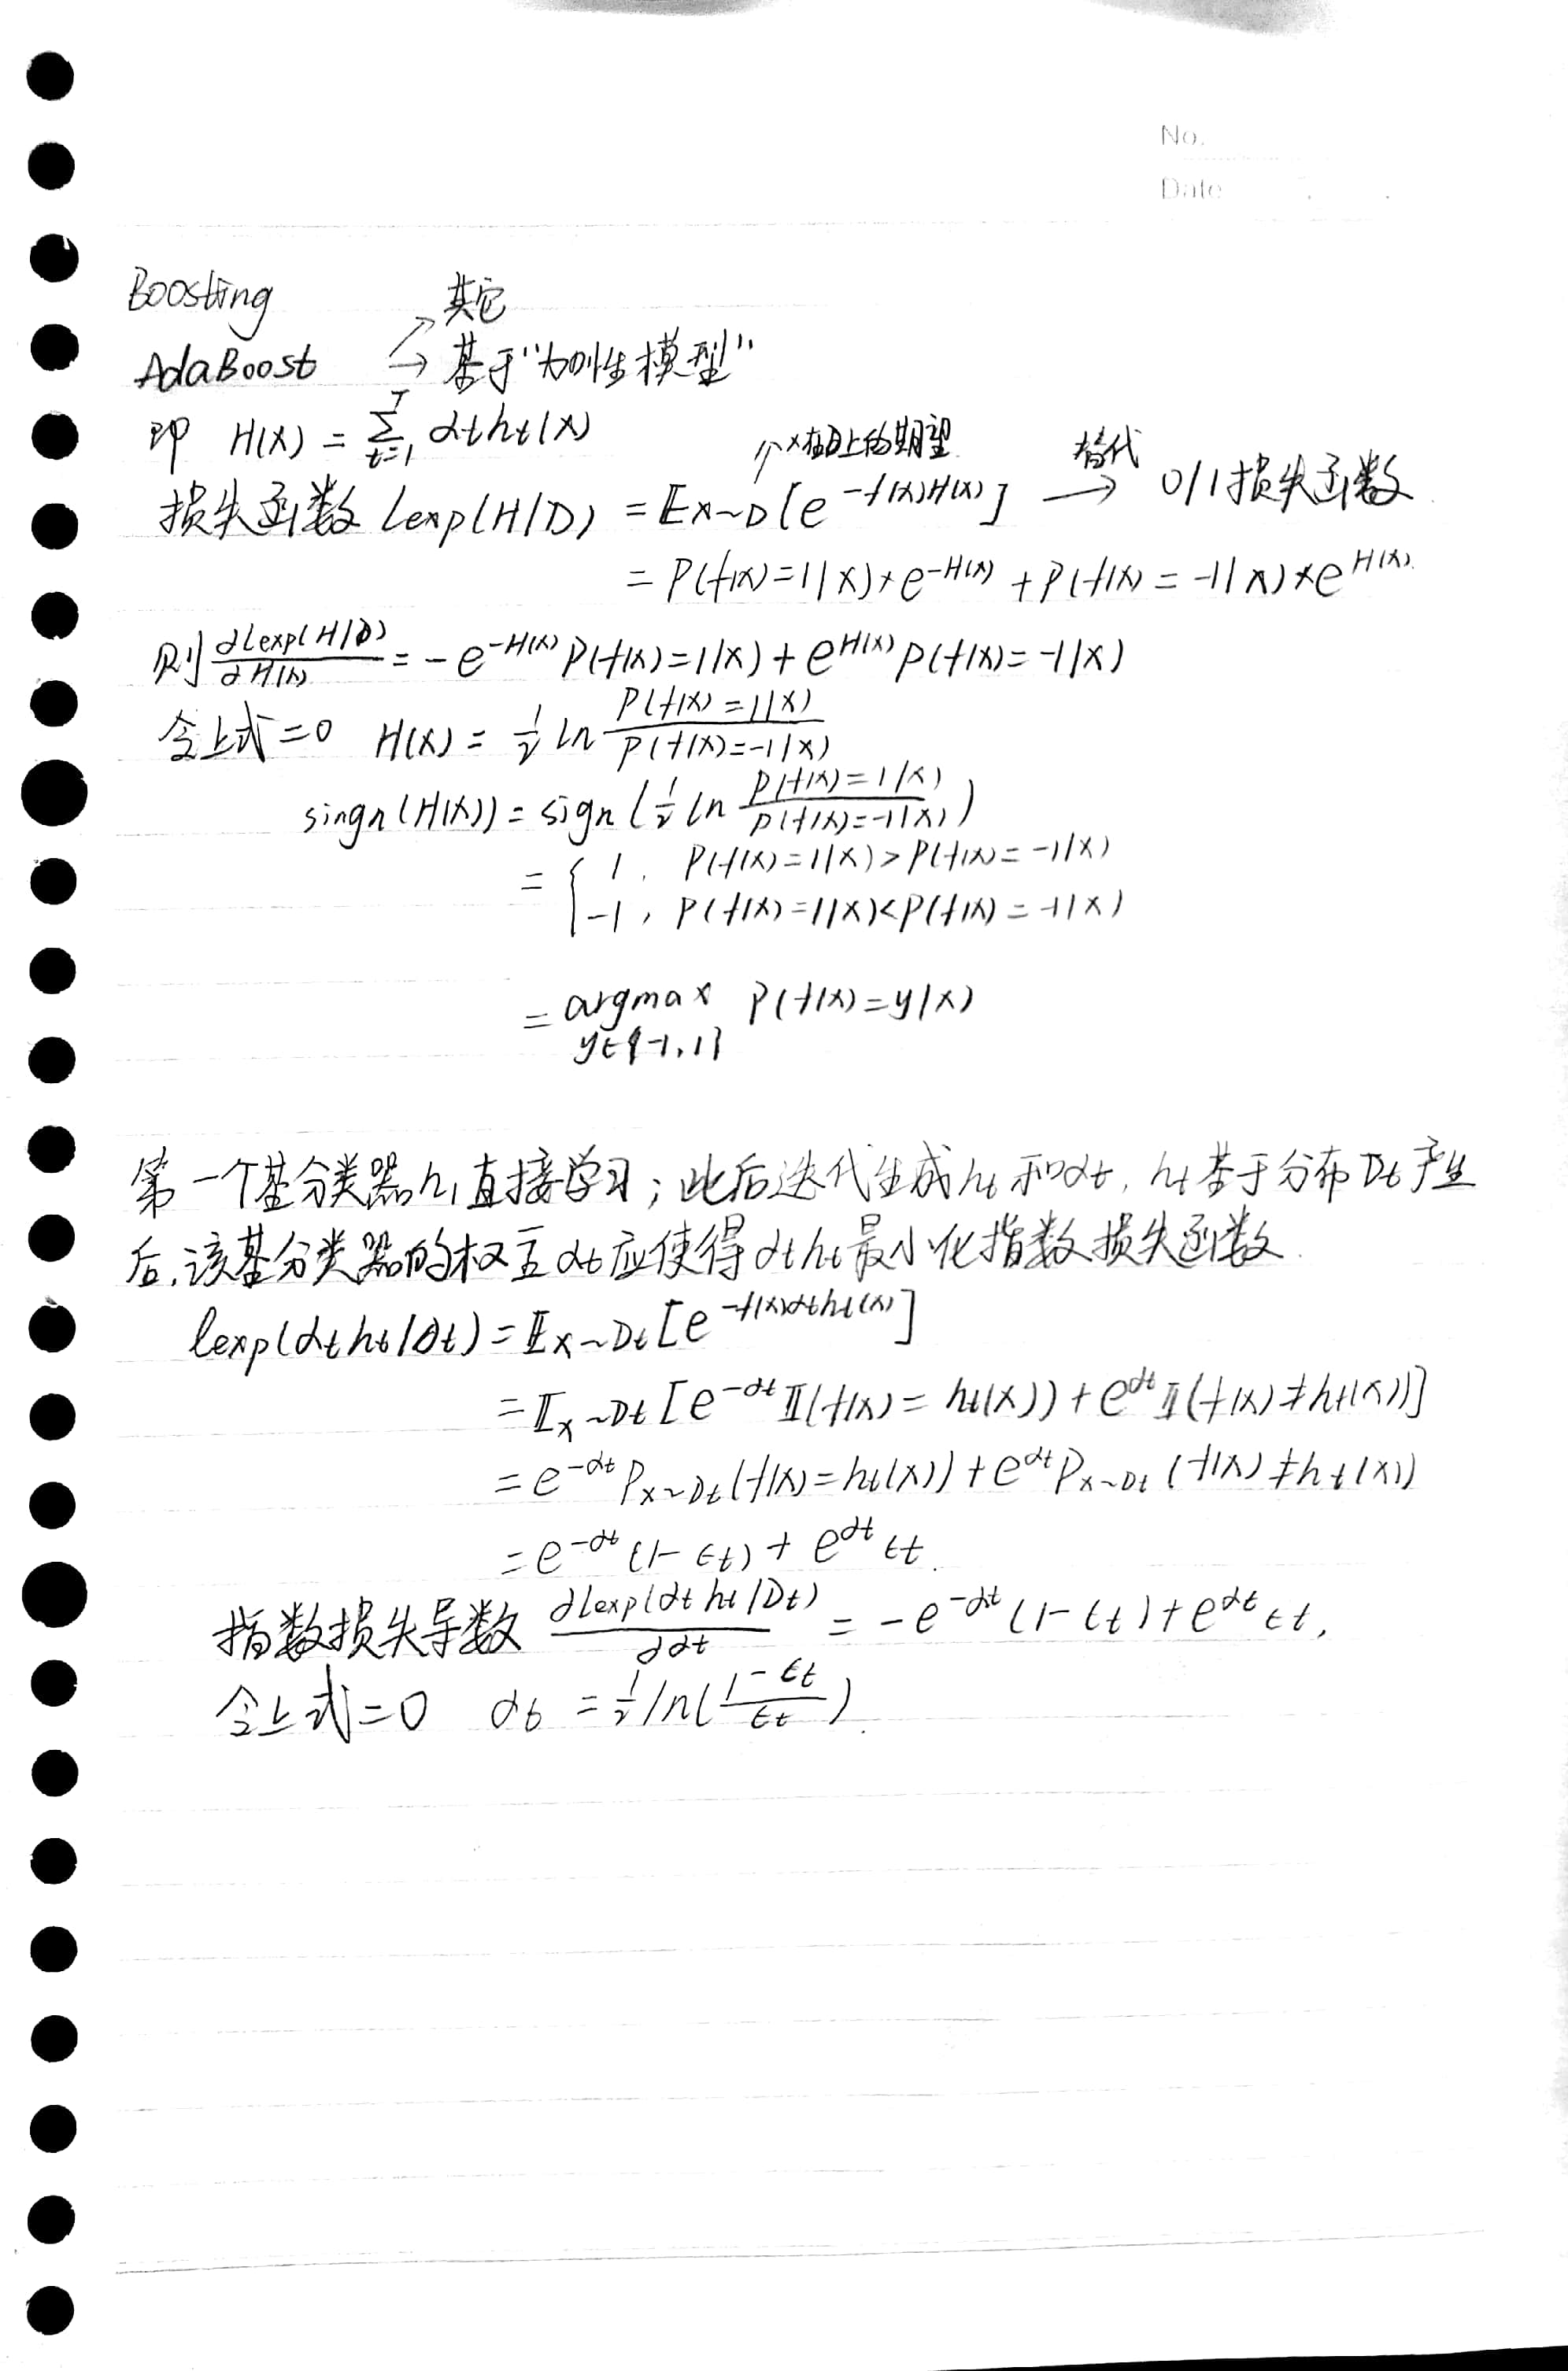 No.
Date
Boosting
AdaBoost ↗ 其它
→ 基于"加性模型"
即 H(x) = Σ_{t=1}^{T} αtht(x)
↑x在D上的期望
损失函数 lexp(H|D) = Ex~D[e^{-f(x)H(x)}] 替代→ 0/1损失函数
= P(f(x)=1|x)*e^{-H(x)} + P(f(x)=-1|x)*e^{H(x)}.
则 ∂lexp(H|D)/∂H(x) = -e^{-H(x)} P(f(x)=1|x) + e^{H(x)} P(f(x)=-1|x)
令上式=0 H(x) = 1/2 ln P(f(x)=1|x)/P(f(x)=-1|x)
singn(H(x)) = sign(1/2 ln P(f(x)=1|x)/P(f(x)=-1|x))
= { 1, P(f(x)=1|x) > P(f(x)=-1|x)
-1, P(f(x)=1|x) < P(f(x)=-1|x)
= argmax P(f(x)=y|x)
y∈{-1,1}
第一个基分类器h1直接学习;此后迭代生成ht和αt, ht基于分布Dt产生
后,该基分类器的权重αt应使得αtht最小化指数损失函数.
lexp(αtht|Dt) = Ex~Dt[e^{-f(x)αtht(x)}]
= Ex~Dt[e^{-αt} I(f(x)=ht(x)) + e^{αt} I(f(x)≠ht(x))]
= e^{-αt} Px~Dt(f(x)=ht(x)) + e^{αt} Px~Dt(f(x)≠ht(x))
= e^{-αt}(1-εt) + e^{αt} εt.
指数损失导数 ∂lexp(αtht|Dt)/∂αt = -e^{-αt}(1-εt) + e^{αt} εt,
令上式=0 αt = 1/2 ln((1-εt)/εt).